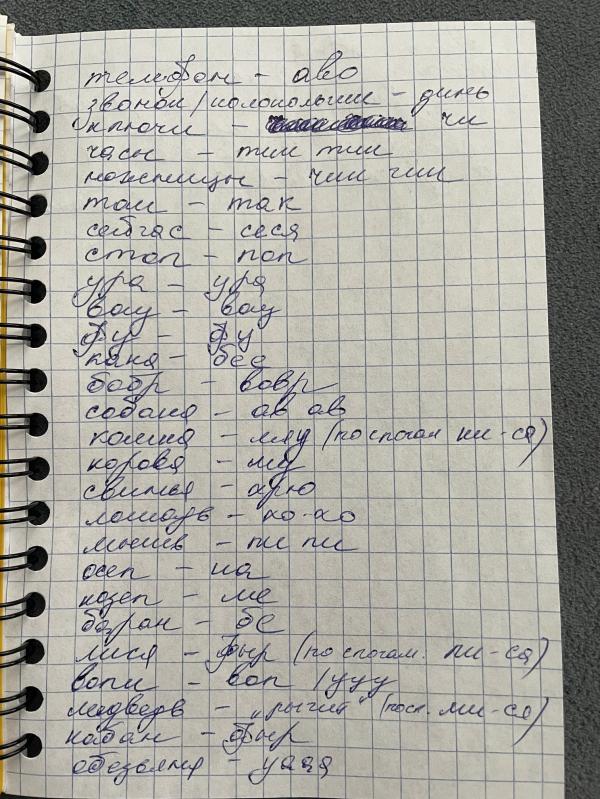 телефон - аво
звонок/колокольчик - динь
ключи - чи
часы - тик тик
ножницы - чик чик
там - так
сейчас - сися
стоп - поп
ура - ура
вау - вау
фу - фу
кака - бее
бобр - вовр
собака - ав ав
кошка - мяу (по слогам ки-са)
корова - му
свинья - хрю
лошадь - хо-хо
мышь - пи пи
осел - иа
козел - ме
баран - бе
лиса - фыр (по слогам. ли-са)
волк - вол /ууу
медведь - "рычит" (посл. ми-са)
кабан - фыр
обезьяна - уааа